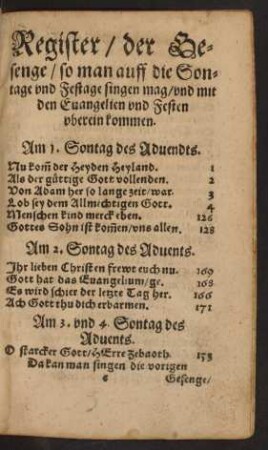 Register / der Ge-
senge / so man auff die Son-
tage vnd Festage singen mag / vnd mit
den Euangelien vnd Festen
vberein kommen.
Am 1. Sontag des Aduendts.
Nu kom̃ der Heyden Heyland. 1
Als der gůttige Gott vollenden. 2
Von Adam her so lange zeit / war. 3
Lob sey dem Allmechtigen Gott. 4
Menschen kind merck eben. 126
Gottes Sohn ist kom̃en / vns allen. 128
Am 2. Sontag des Aduents.
Ihr lieben Christen frewt euch nu. 169
Gott hat das Euangelium / ge. 168
Es wird schier der letzte Tag her. 166
Ach Gott thu dich erbarmen. 171
Am 3. vnd 4. Sontag des
Aduents.
O starcker Gott / HErre Zebaoth. 158
Da kan man singen die vorigen
Gesenge /